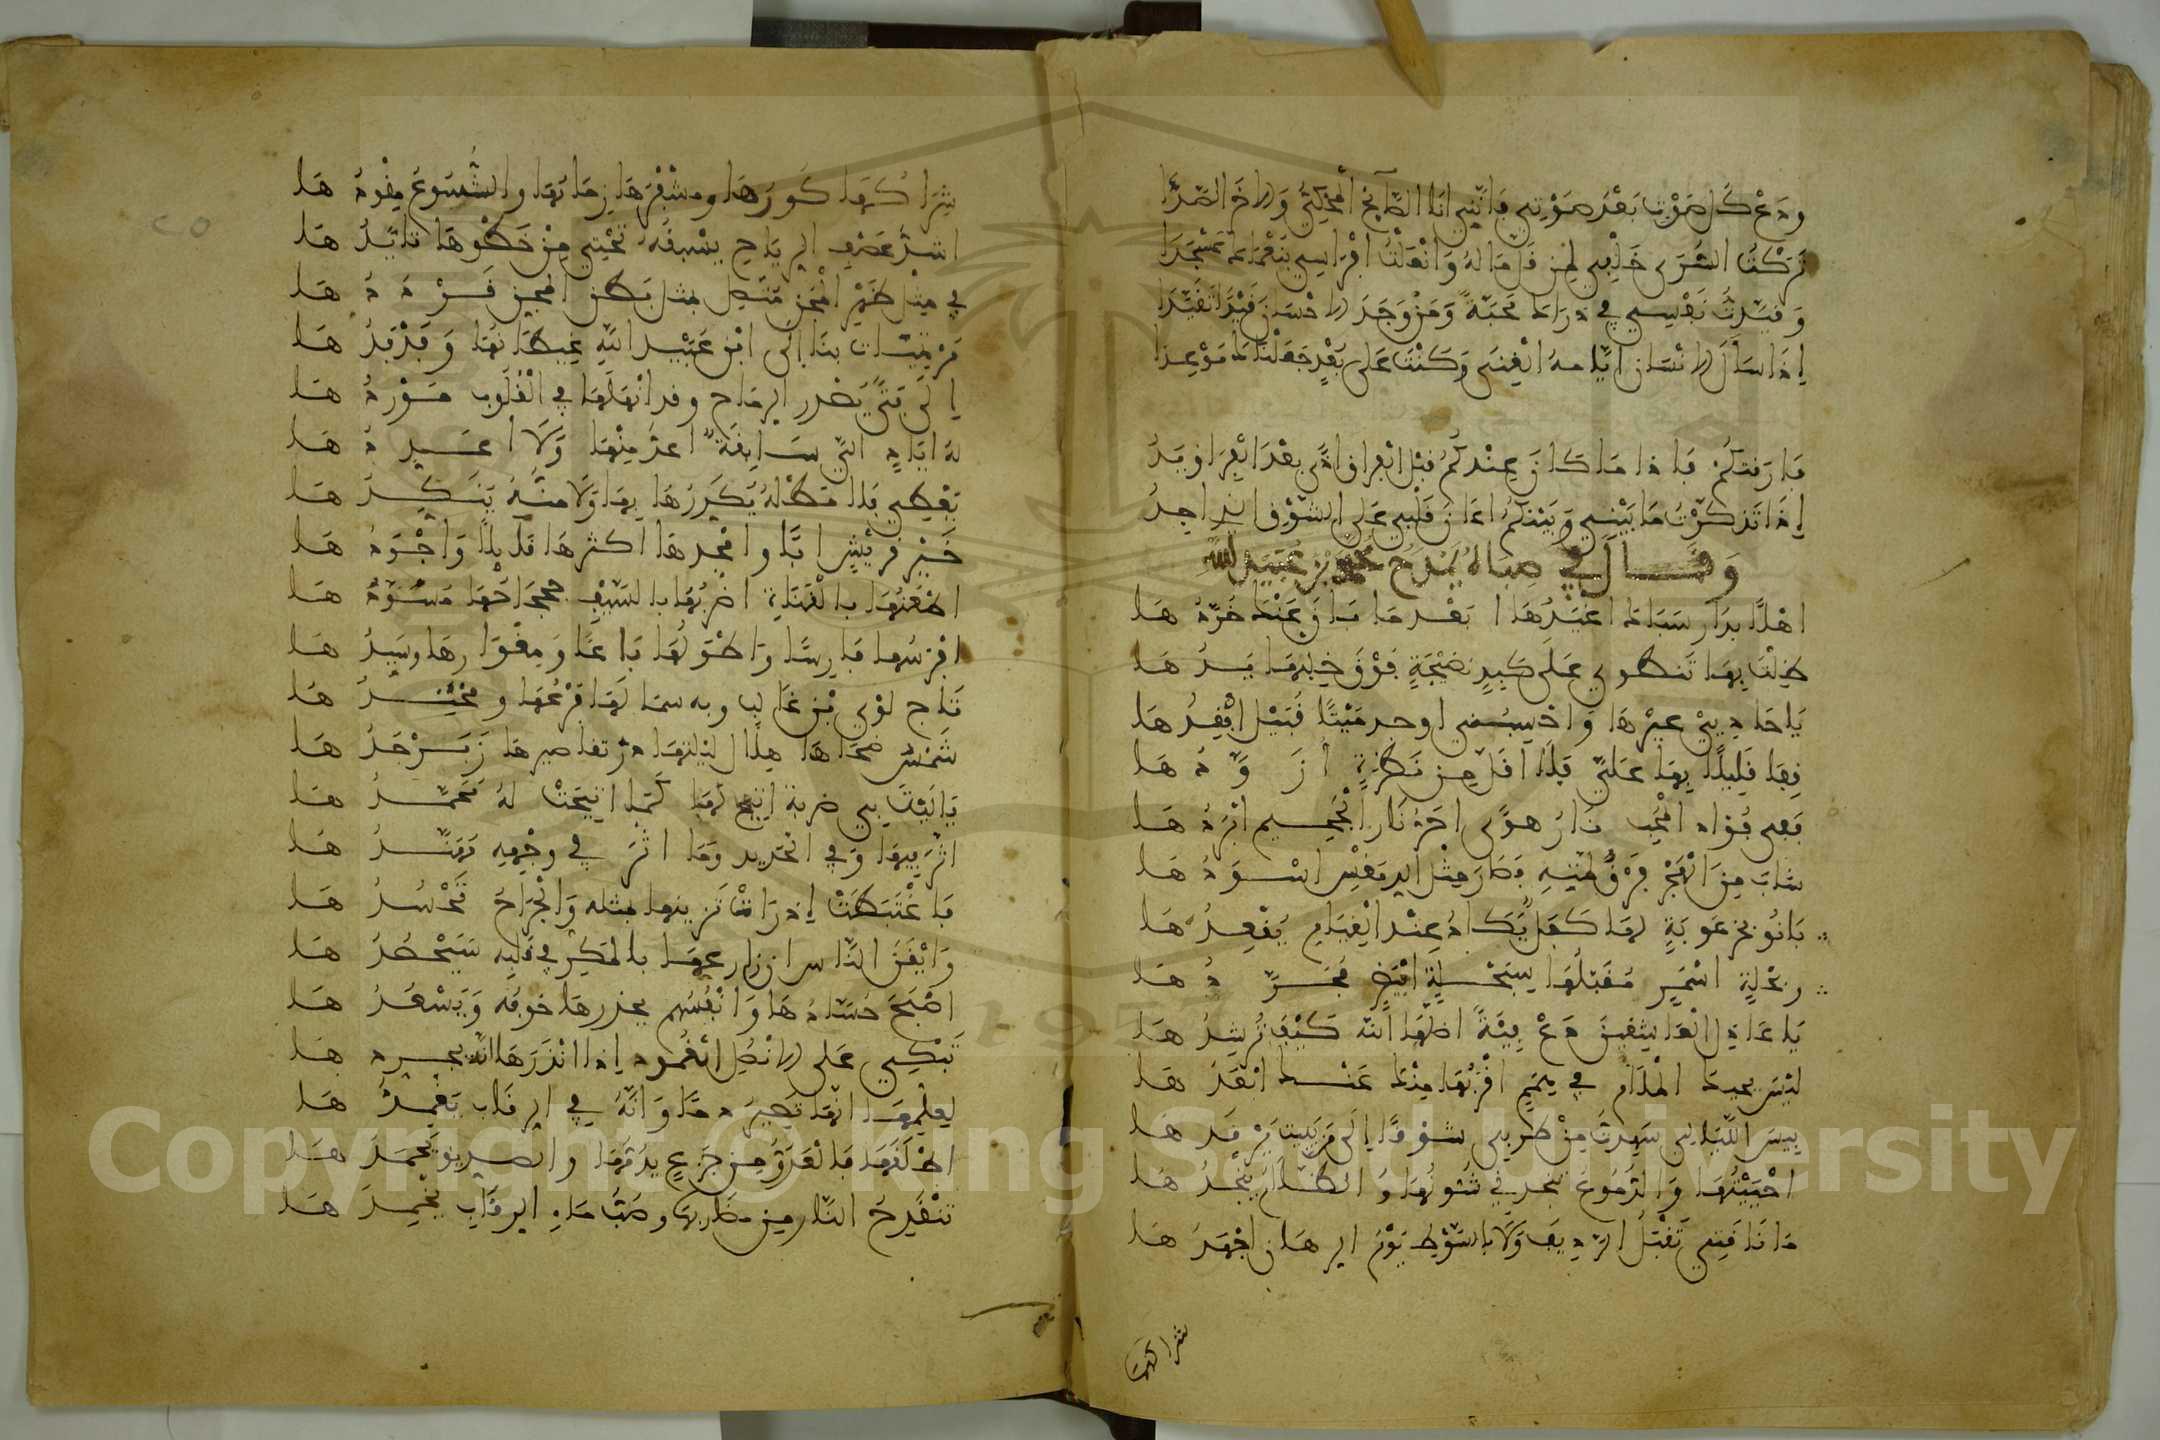 ودع كل صوت بعد صوتي فإنني انا الصائح المحكي والاخر الصدا
تركت السرى خلفي لمن قل ماله وانعلت افراسي بنعماك عسجدا
وقيدت نفسي في ذراك محبة ومن وجد الاحسان قيدا تقيدا
إذا سأل الانسان ايامه الغنى وكنت على بعد جعلتك موعدا
فارقتكم فاذا ما كان عندكم قبل الفراق اذى بعد الفراق يد
إذا تذكرت ما بيني وبينكم اعان قلبي على الشوق الذي اجد
وقال في صباه يمدح محمد بن عبيد الله
اهلا بدار سباك اغيدها ابعد ما بان عنك خردها
ظلت بها تنطوي على كبد نضيجة فوق خلبها يدها
يا حاديي عيرها واحسبني اوجد ميتا قبيل افقدها
قفا قليلا بها علي فلا اقل من نظرة ازودها
ففي فؤاد المحب نار هوى احر نار الجحيم ابردها
شاب من الهجر فرق لمته فصار مثل الدمقس اسودها
بانوا بخرعوبة لها كفل يكاد عند القيام يقعدها
ربحلة اسمر مقبلها سبحلة ابيض مجردها
يا عاذل العاشقين دع فئة اضلها الله كيف ترشدها
ليس يحيك الملام في همم اقربها منك عنك ابعدها
بيس الليالي سهدت من طربي شوقا إلى من يبيت يرقدها
احييتها والدموع تنجدني شئونها والظلام ينجدها
لا ناقتي تقبل الرديف ولا بالسوط يوم الرهان اجهدها
شراكها
شراكها كورها ومشفرها زمامها والشسوع مقودها
اشد عصف الرياح يسبقه تحتي من خطوها تأيدها
في مثل ظهر المجن متصل مثل بطن المجن قرددها
مرتميات بنا إلى ابن عبيد الله غيطانها وفدفدها
إلى فتى يصدر الرماح وقد انهلها في القلوب موردها
له اياد الي سابقة اعد منها ولا اعددها
يعطي فلا مطله يكدرها بها ولا منه ينكدها
خير قريش ابا وامجدها اكثرها نائلا واجودها
اطعنها بالقناة اضربها بالسيف جحجاحها مسودها
افرسها فارسا واطولها باعا ومغوارها وسيدها
تاج لؤي بن غالب وبه سما لها فرعها ومحتدها
شمس ضحاها هلال ليلتها در تقاصيرها زبرجدها
يا ليت بي ضربة اتيح لها كما اتيحت له محمدها
اثر فيها وفي الحديد وما اثر في وجهه مهندها
فاغتبطت إذ رات تزينها بمثله والجراح تحسدها
وايقن الناس ان زارعها بالمكر في قلبه سيحصدها
اصبح حساده وانفسهم يحدرها خوفه ويصعدها
تبكي على الانصل الغمود إذا انذرها انه يجردها
لعلمها انها تصير دما وانه في الرقاب يغمدها
اطلقها فالعدو من جزع يذمها والصديق يحمدها
تنقدح النار من مضاربها وصب ماء الرقاب يخمدها